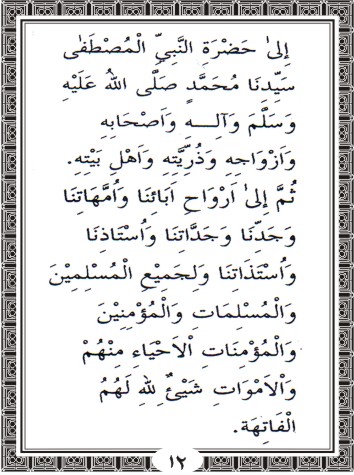 إِلىٰ حَضْرَةِ النَّبِيِّ الْمُصْطَفٰى
سَيِّدِنَا مُحَمَّدٍ صَلَّى اللهُ عَلَيْهِ
وَسَلَّمَ وَآلِـــهِ وَاَصْحَابِهِ
وَاَزْوَاجِهِ وَذُرِّيَّتِهِ وَاَهْلِ بَيْتِهِ.
ثُمَّ إِلىٰ اَرْوَاحِ اَبَائِنَا وَاُمَّهَاتِنَا
وَجَدِّنَا وَجَدَّاتِنَا وَاُسْتَاذِنَا
وَاُسْتَذَاتِنَا وَلِجَمِيْعِ الْمُسْلِمِيْنَ
وَالْمُسْلِمَاتِ وَالْمُؤْمِنِيْنَ
وَالْمُؤْمِنَاتِ اْلاَحْيَاءِ مِنْهُمْ
وَاْلاَمْوَاتِ شَيْئٌ لِلّٰهِ لَهُمُ
الْفَاتِهَة.
١٢